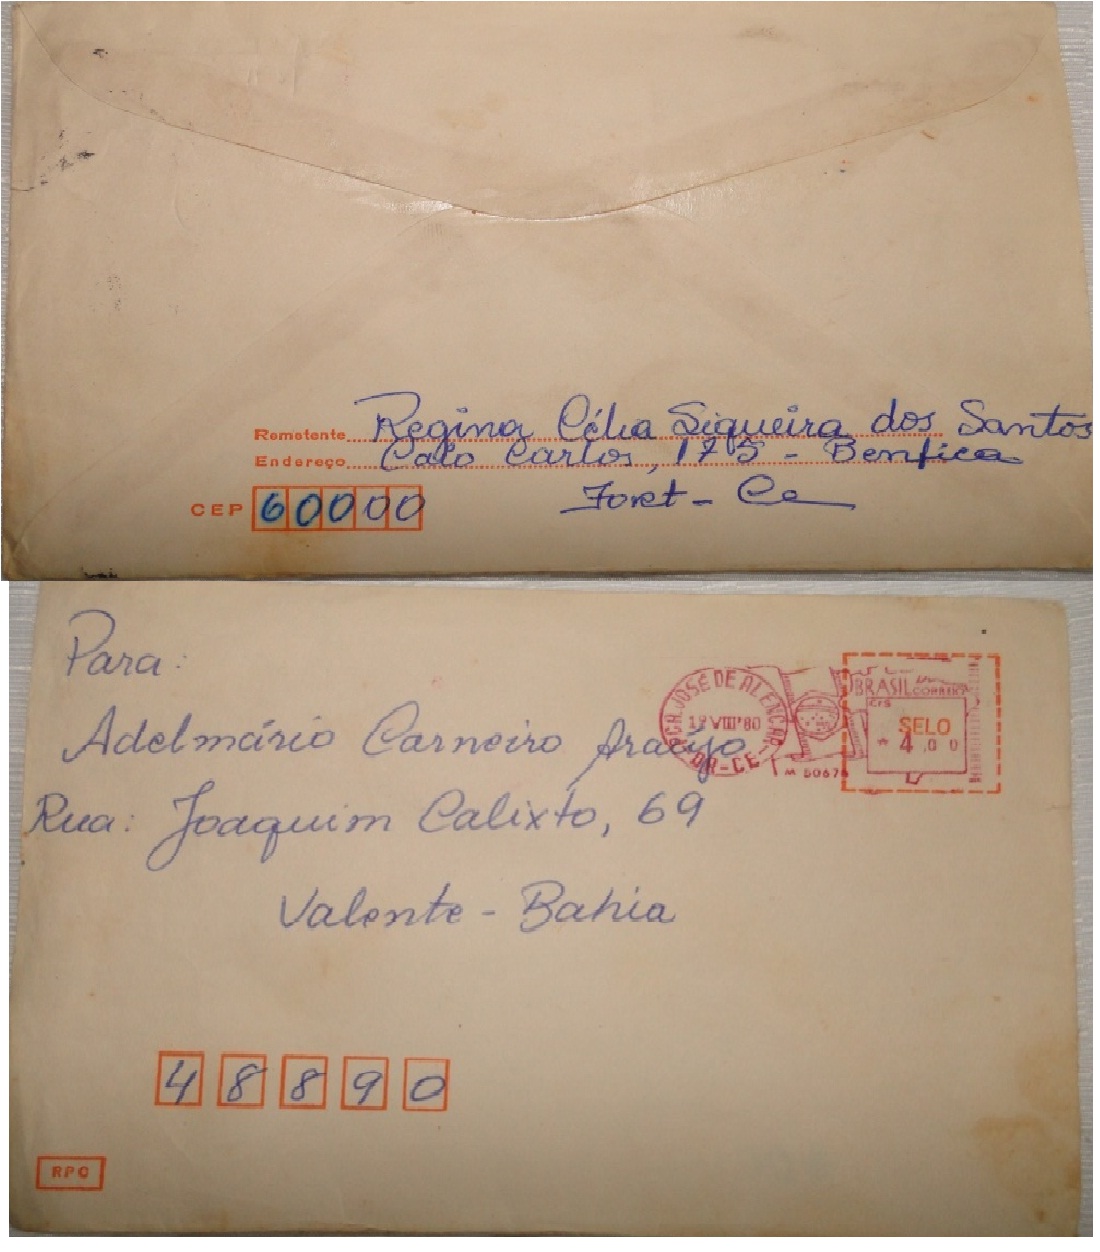 Remetente Regina Célia Siqueira dos Santos
Endereço Caio Carlos, 175 - Benfica
CEP 60000 Fort - Ce
Para:
AGCR. JOSÉ DE ALENCAR
DR-CE
12 VIII'80
BRASIL CORREIO
Cr$
SELO
* 4,00
Adelmário Carneiro Araújo
Rua: Joaquim Calixto, 69
Valente - Bahia
48890
RPC